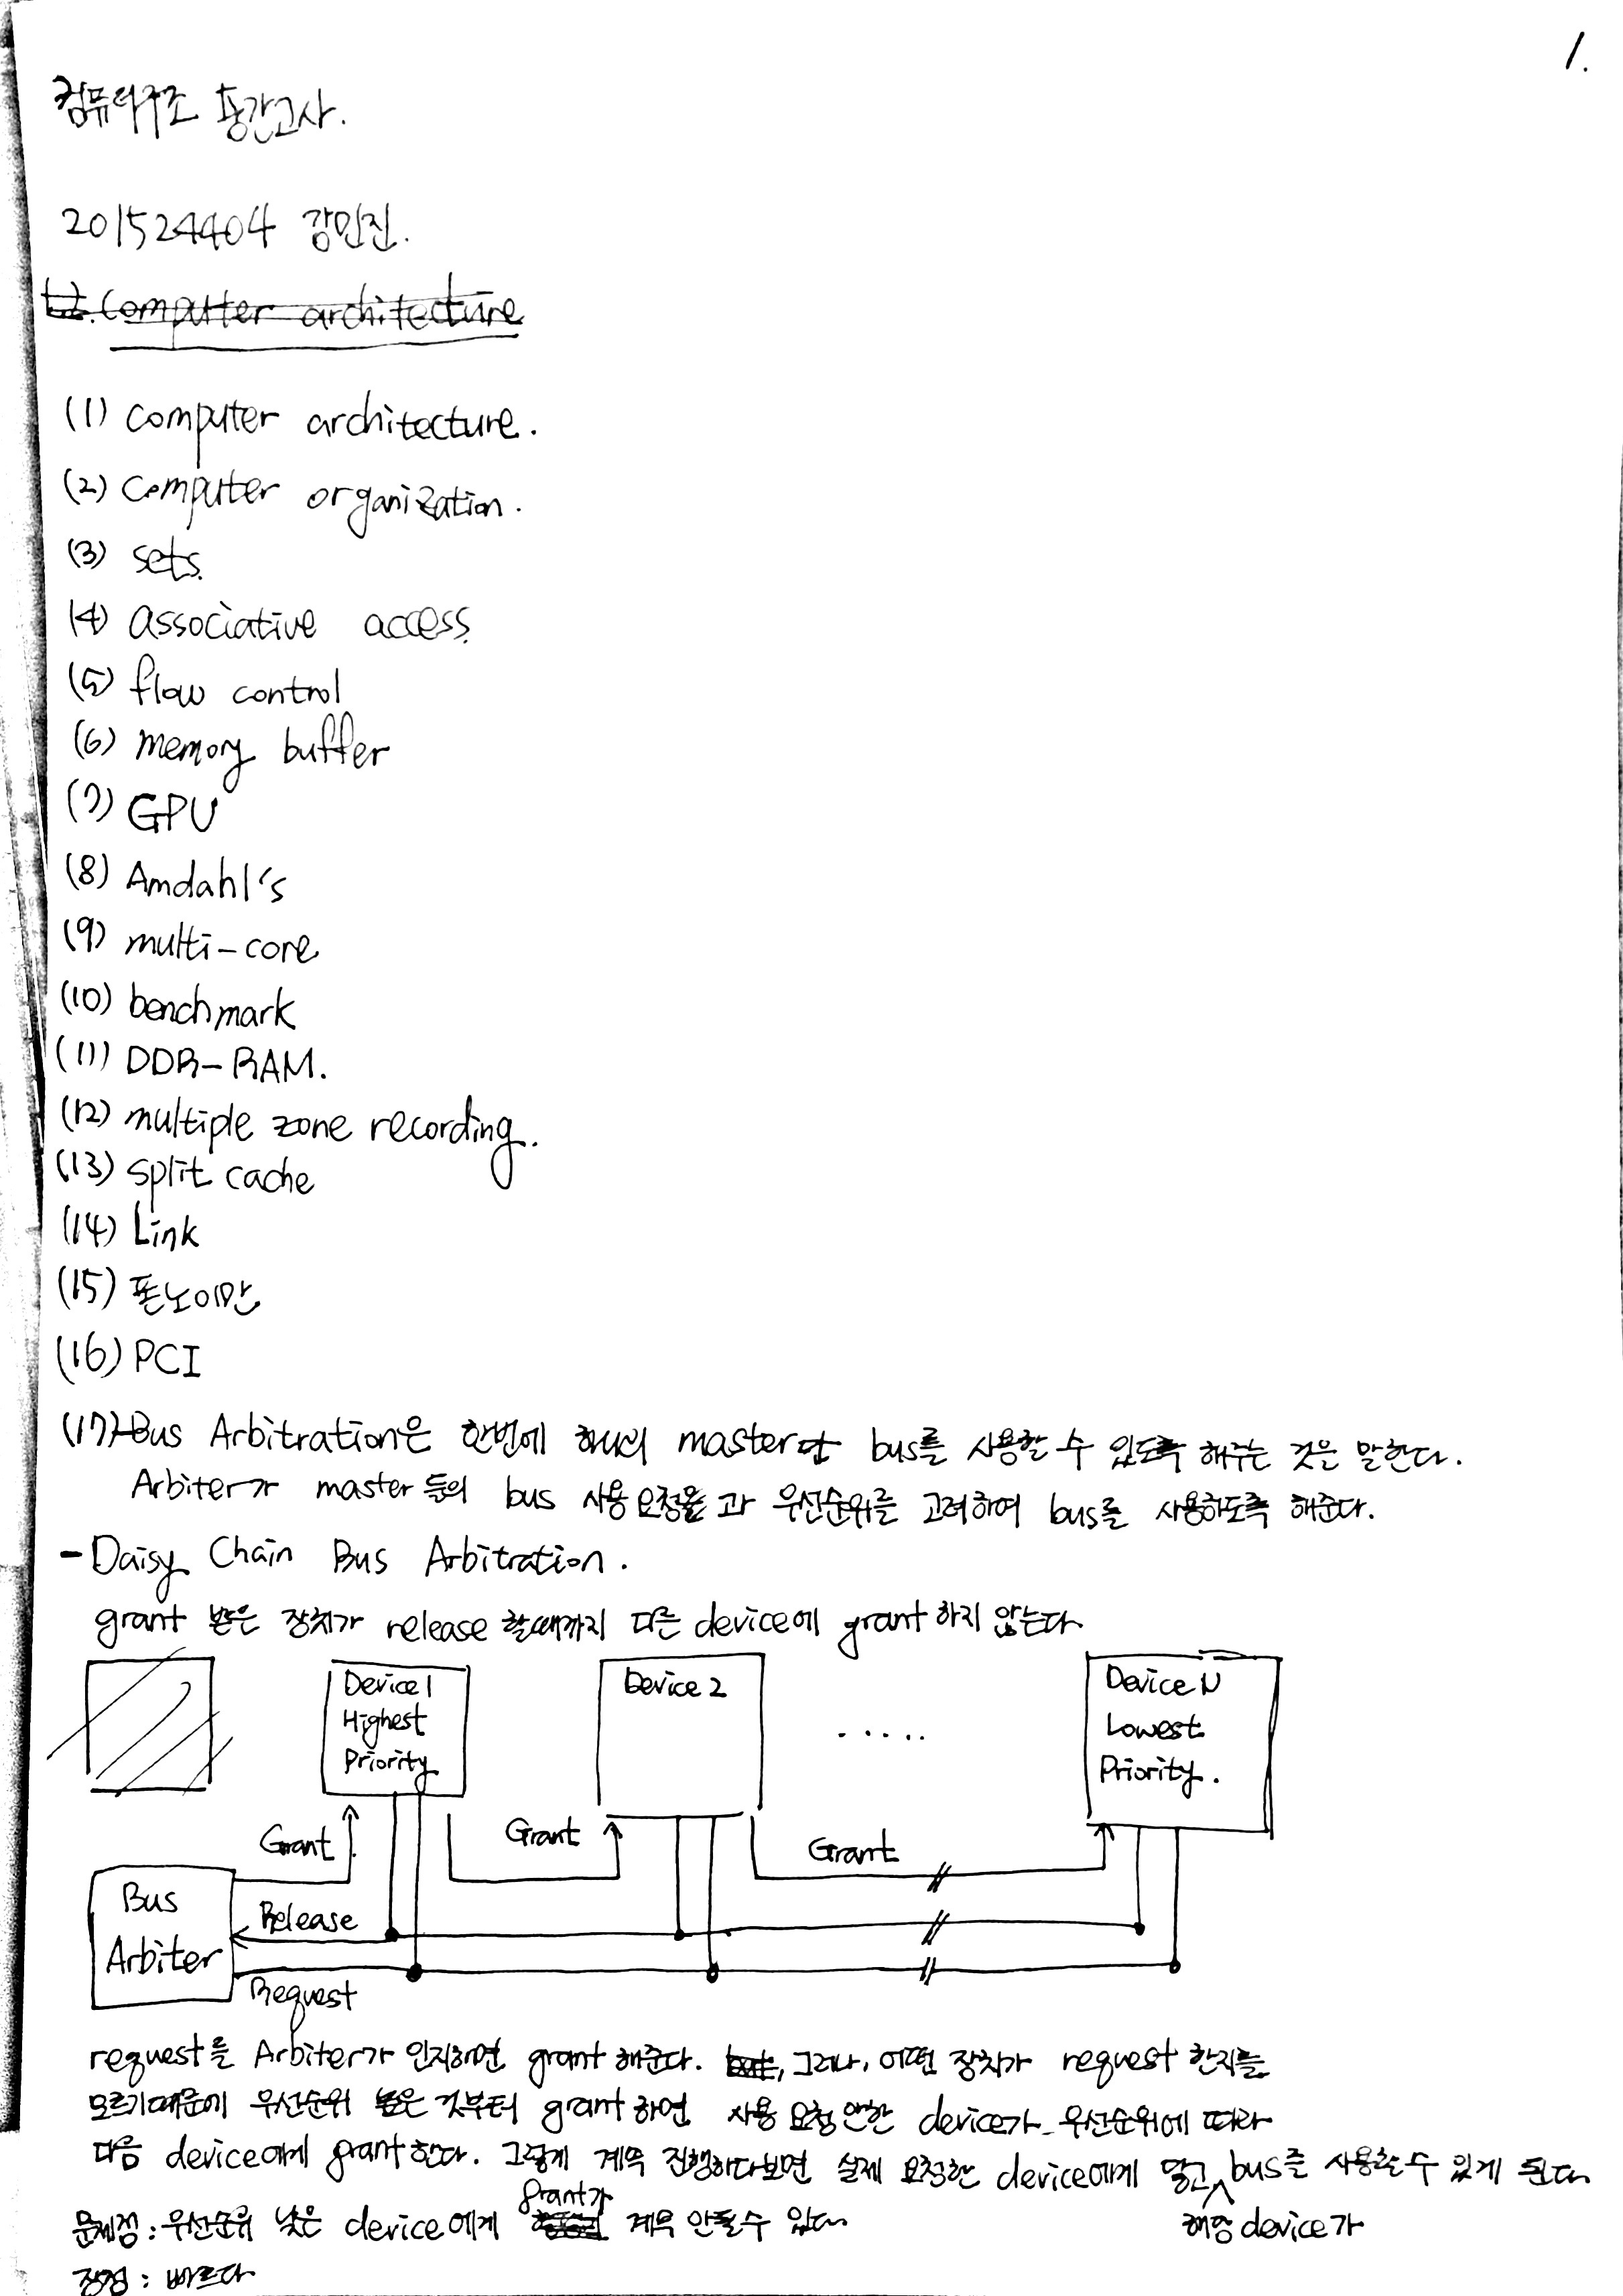 1.
컴퓨터구조 중간고사.
201524404 강민진.
Computer architecture
(1) computer architecture.
(2) computer organization.
(3) sets.
(4) associative access.
(5) flow control
(6) memory buffer
(7) GPU
(8) Amdahl's
(9) multi-core
(10) benchmark
(11) DDR-RAM.
(12) multiple zone recording.
(13) split cache
(14) Link
(15) 폰노이만
(16) PCI
(17) Bus Arbitration은 한번에 하나의 master만 bus를 사용할 수 있도록 해주는 것은 말한다.
Arbiter가 master들의 bus 사용요청을과 우선순위를 고려하여 bus를 사용하도록 해준다.
- Daisy Chain Bus Arbitration.
grant 받은 장치가 release 할때까지 다른 device에 grant하지 않는다
Device 1 Highest Priority
Device 2
.....
Device N Lowest Priority.
Grant
Grant
Grant
Bus Arbiter
Release
Request
request를 Arbiter가 인지하면 grant해준다. 그러나, 어떤 장치가 request 한지를
모르기때문에 우선순위 높은 것부터 grant하면 사용 요청 안한 device가 우선순위에 따라
다음 device에게 grant한다. 그렇게 계속 진행하다보면 실제 요청한 device에게 닿고 해당 device가 bus를 사용할 수 있게 된다
문제점 : 우선순위 낮은 device에게 grant가 계속 안될수 있다
장점 : 빠르다